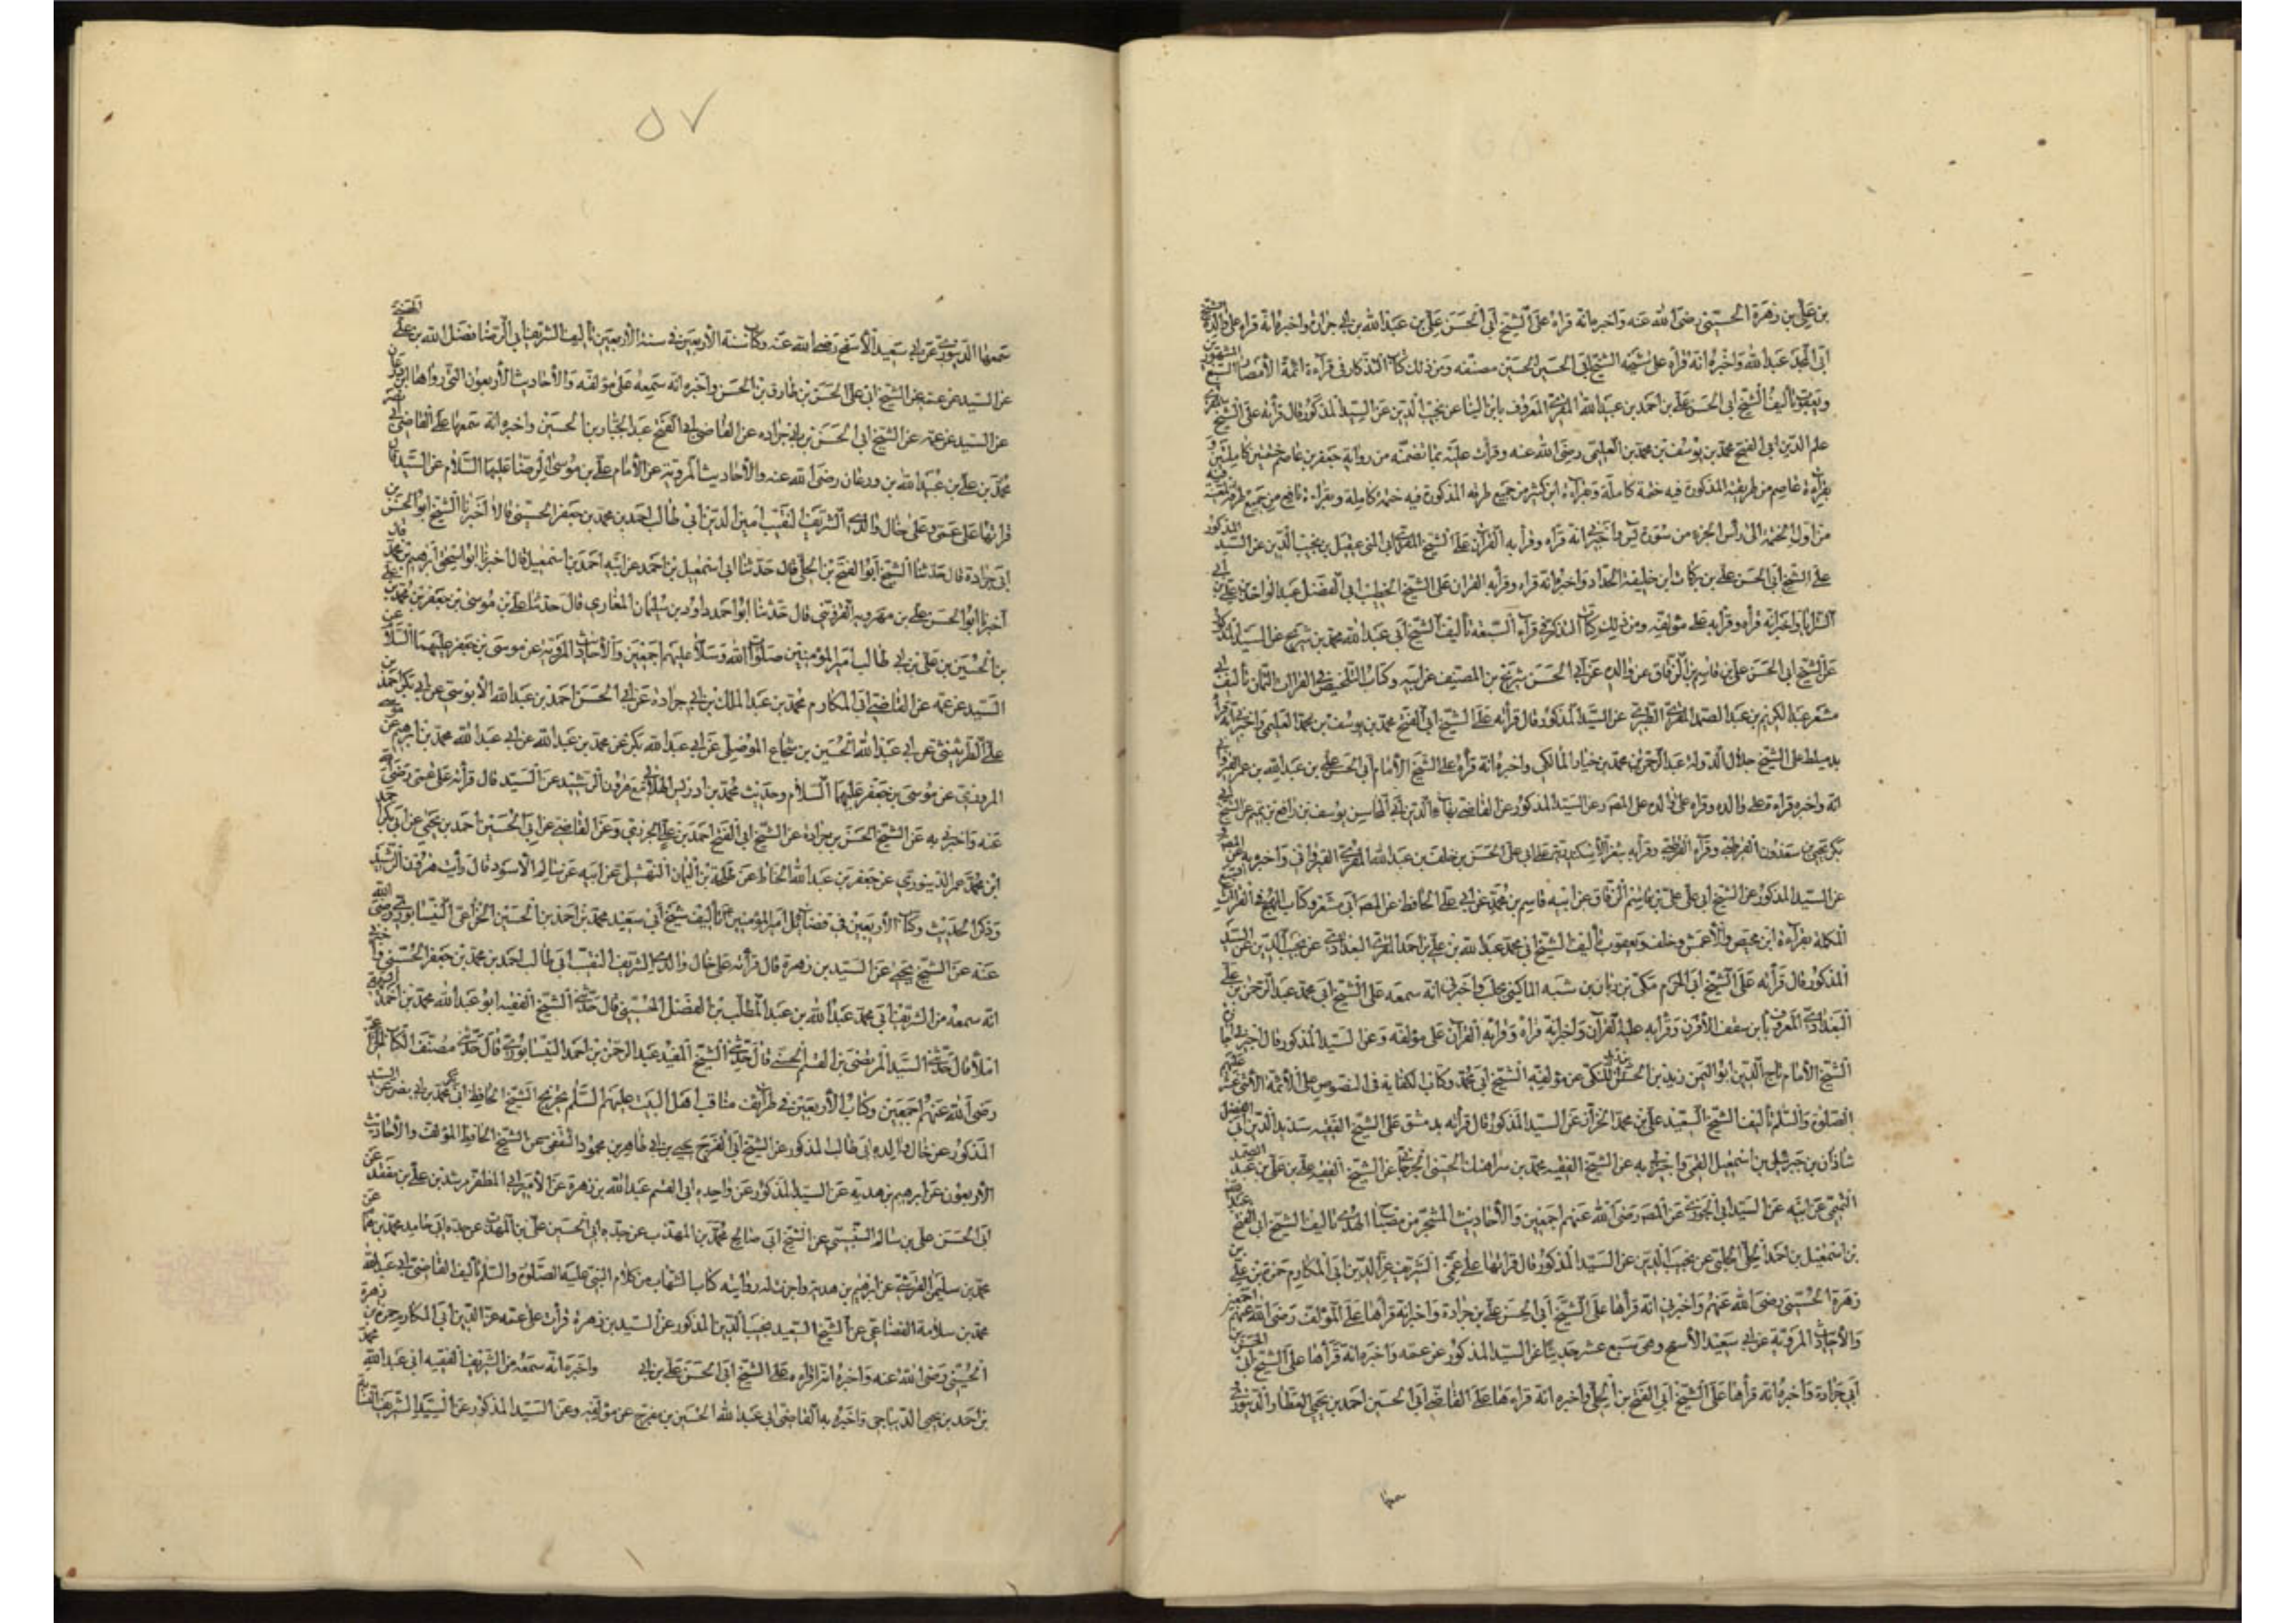 بن علي بن زهرة الحسيني رضي الله عنه واخبره انه قراه على الشيخ ابي الحسن علي بن عبد الله بن ابي جرادة واخبره انه قراه على والده الشيخ
ابي المجد عبد الله واخبره انه قراه على شيخه الشيخ ابي الحسين مصنفه ومن ذلك كتاب التذكار في قراءة ائمة الأمصار السبع المشهورين
ويعقوب تأليف الشيخ ابي الحسن علي بن احمد بن عبد الله المقري المعروف بابن البنا عن نجيب الدين عن السيد المذكور قال قرأته على الشيخ
علم الدين ابي الفتح محمد بن يوسف بن محمد بن العليمي رضي الله عنه وقرأت عليه بما تضمنه من رواية حفص بن عاصم ختمتين كاملتين
بقراءة عاصم من طريقيه المذكورة فيه ختمة كاملة وبقراءة ابن كثير من جميع طرقه المذكورة فيه ختمة كاملة وبقراءة نافع من جميع طرقه
من اول الختمة الى رأس الجزء من سورة يس واخبرني انه قراه وقرأ به القرآن على الشيخ عن نجيب الدين عن السيد المذكور
على الشيخ ابي الحسن علي بن بركات ابن خليفة الحداد واخبره انه قراه وقرأ به القران على الشيخ الخطيب ابي الفضل عبد الواحد بن علي بن
واخبر انه قرأه وقرأ به على مؤلفه ومن ذلك كتاب التذكرة في قراءة السبعة تأليف الشيخ ابي عبد الله محمد بن شريح عن السيد المذكور
عن الشيخ ابي الحسن علي بن قاسم بن الزقاق عن والده عن ابي الحسن شريح بن المصنف عن ابيه وكتاب التلخيص في القراات الثمان تأليف ابي
معشر عبد الكريم بن عبد الصمد المقري الطبري عن السيد المذكور قال قرأته على الشيخ ابي الفتح محمد بن يوسف بن محمد العليمي واخبرني انه قرأه
بدمياط على الشيخ جلال الدولة عبد الرحمن بن محمد بن خيار المالكي واخبره انه قرأه على الشيخ الأمام ابي الحسن علي بن عبد الله بن عمر
انه واخبره قراءة على والده وقراه على والده على المصنف وعن السيد المذكور عن القاضي بهاء الدين ابي المحاسن يوسف بن رافع بن تميم عن الشيخ
بكر يحيى بن سعدون القرطبي وقراه القرطبي وقرأ به بثغر الأسكندرية على ابي علي الحسن بن خلف بن عبد الله المقري القيرواني واخبره به عن
عن السيد المذكور عن الشيخ ابي علي بن قاسم الزقاق عن ابيه قاسم بن محمد عن ابي علي الحافظ عن المصنف ابي معشر وكتاب المبهج في القراات
المكملة بقراءة ابن محيصن والأعمش وخلف ويعقوب تأليف الشيخ ابي محمد عبد الله بن علي بن احمد المقري البغدادي عن نجيب الدين عن السيد
المذكور قال قرأته على الشيخ ابي الحرم مكي بن ريان بن شبه الماكيني بحلب واخبرني انه سمعه على الشيخ ابي محمد عبد الرحمن بن علي
البغدادي المعروف بابن سقف الأقرن وقرأ به عليه القرآن واخبر انه قراه وقرأ به القرآن على مؤلفه وعن السيد المذكور قال اخبرني
الشيخ الأمام تاج الدين ابو اليمن زيد بن الحسن الكندي عن مؤلفه الشيخ ابي محمد وكتاب الكفاية في النصوص على الأئمة الأثني عشر
الصلوة والسلم تأليف الشيخ السعيد علي بن محمد الخزاز عن السيد المذكور قال قرأته بدمشق على الشيخ الفقيه سديد الدين ابي الفضل
شاذان بن جبرئيل بن اسمعيل القمي واخبرني به عن الشيخ الفقيه محمد بن سراهنك الحسني الجرجاني عن الشيخ الفقيه علي بن علي بن عبد الصمد
التميمي عن ابيه عن السيد ابي عن المصنف رضي الله عنهم اجمعين والأحاديث تأليف الشيخ ابي الفتح عبد الله
بن اسمعيل بن احمد الجلي الحلبي عن نجيب الدين عن السيد المذكور قال قرأتها على عمي الشريف عز الدين ابي المكارم حمزة بن علي بن
زهرة الحسيني رضي الله عنهم واخبرني انه قرأها على الشيخ ابي الحسن علي بن جرادة واخبر انه قرأها على المؤلف رضي الله عنهم اجمعين
والأحاديث المروية عن ابي سعيد الأسمح وهي سبع عشر حديثا عن السيد المذكور عن عمه واخبره انه قرأها على الشيخ ابي الحسن بن
ابي جرادة واخبره انه قرأها على الشيخ ابي الفتح بن الجلي واخبره انه قراءها على القاضي ابي الحسين احمد بن يحيى العطار الدينوري
سمعها
٥٧
سمعها الدينوري عن ابي سعيد الأسمح رضي الله عنه وكتاب سنة الأربعين في سنة الأربعين تأليف الشريف ابي الرضا فضل الله بن علي الحسني
عن السيد عن عمه عن الشيخ ابي علي الحسن بن طارق بن الحسن واخبره انه سمعه على مؤلفه والأحاديث الأربعون التي رواها ابن ودعان
عن السيد عن عمه عن الشيخ ابي الحسن بن ابي جراده عن القاضي ابي الفتح عبد الجبار بن الحسين واخبره انه سمعها على القاضي ابي نصر
محمد بن علي بن عبيد الله بن ودعان رضي الله عنه والأحاديث المروية عن الأمام علي بن موسى الرضا عليهما السلام عن السيد قال
قرأتها على عمي وعلى خال والدي الشريف النقيب امين الدين ابي طالب احمد بن محمد بن جعفر الحسيني قالا اخبرنا الشيخ ابو الحسن بن
ابي جرادة قال حدثنا الشيخ ابو الفتح بن الجلي قال حدثنا ابي اسمعيل بن احمد عن ابيه احمد بن اسمعيل قال اخبرنا ابو اسحق ابرهيم بن محمد قال
اخبرنا ابو الحسن علي بن مهرويه القزويني قال حدثنا ابو احمد داود بن سليمان المغازي قال حدثنا علي بن موسى بن جعفر بن محمد بن علي
بن الحسين بن علي بن ابي طالب امير المؤمنين صلوات الله وسلامه عليهم اجمعين والأحاديث المروية عن موسى بن جعفر عليهما السلام عن
السيد عن عمه عن القاضي ابي المكارم محمد بن عبد الملك بن ابي جرادة عن ابي الحسن احمد بن عبد الله الأبنوسي عن ابي بكر احمد بن
علي الطريثيثي عن ابي عبد الله الحسين بن شجاع الموصلي عن ابي عبد الله بكر عن محمد بن عبد الله عن ابي عبد الله محمد بن ابرهيم عن موسى
المروزي عن موسى بن جعفر عليهما السلام وحديث محمد بن ادريس الهلالي مع هرون الرشيد عن السيد قال قرأته على عمي رضي الله
عنه واخبرني به عن الشيخ الحسن بن جرادة عن الشيخ ابي الفتح احمد بن علي الجزري وعن القاضي عن ابي الحسين احمد بن يحيى عن ابي بكر احمد
ابن محمد عمر الدينوري عن جعفر بن عبد الله الحناط عن طلحة بن اليمان النهشلي عن ابيه عن سالم الأسود قال رأيت هرون الرشيد
وذكر الحديث وكتاب الأربعين في فضائل امير المؤمنين تأليف شيخ ابي سعيد محمد بن احمد بن الحسين الخزاعي النيسابوري رضي الله
عنه عن الشيخ يحيى عن السيد بن زهرة قال قرأته على خال والدي الشريف النقيب ابي طالب احمد بن محمد بن جعفر الحسيني واخبرني
انه سمعه من الشريف ابي محمد عبد الله بن عبد المطلب بن الفضل الحسيني قال حدثني الشيخ الفقيه ابو عبد الله محمد بن احمد
املاء قال حدثني السيد المرتضى بن القسم الحسني قال حدثني الشيخ المفيد عبد الرحمن بن احمد النيسابوري قال حدثني مصنف الكتاب
رضي الله عنهم اجمعين وكتاب الأربعين في طرايف مناقب اهل البيت عليهم السلم تخريج الشيخ الحافظ ابي محمد بن ابي نصر عن السيد
المذكور عن خال والده ابي طالب المذكور عن الشيخ ابي الفرج يحيى بن ابي طاهر بن محمود الثقفي عن الشيخ الحافظ المؤلف والأحاديث
الأربعون عن ابرهيم بن هدبه عن السيد المذكور عن والده ابي القسم عبد الله بن زهرة عن الأمير ابي المظفر مرشد بن علي بن منقذ عن
ابي الحسن علي بن سالم السنبسي عن الشيخ ابي صالح محمد بن المهذب عن جده ابي الحسين علي بن المهذب عن جده ابي حامد محمد بن همام عن
محمد بن سليمن القرشي عن ابرهيم بن هدبة واجزت له رواية كتاب الشهاب من كلام النبي عليه الصلوة والسلم تأليف القاضي ابي عبد الله
محمد بن سلامة القضاعي عن الشيخ السعيد نجيب الدين المذكور عن السيد بن زهرة قرأت على عمه عز الدين ابي المكارم حمزة بن زهرة
الحسيني رضي الله عنه واخبره انه قراه على الشيخ ابي الحسن علي بن ابي واخبره انه سمعه من الشريف الفقيه ابي عبد الله محمد
بن احمد بن يحيى الديباجي واخبره به القاضي ابي عبد الله الحسين بن مفرج عن مؤلفه وعن السيد المذكور عن السيد الشريف